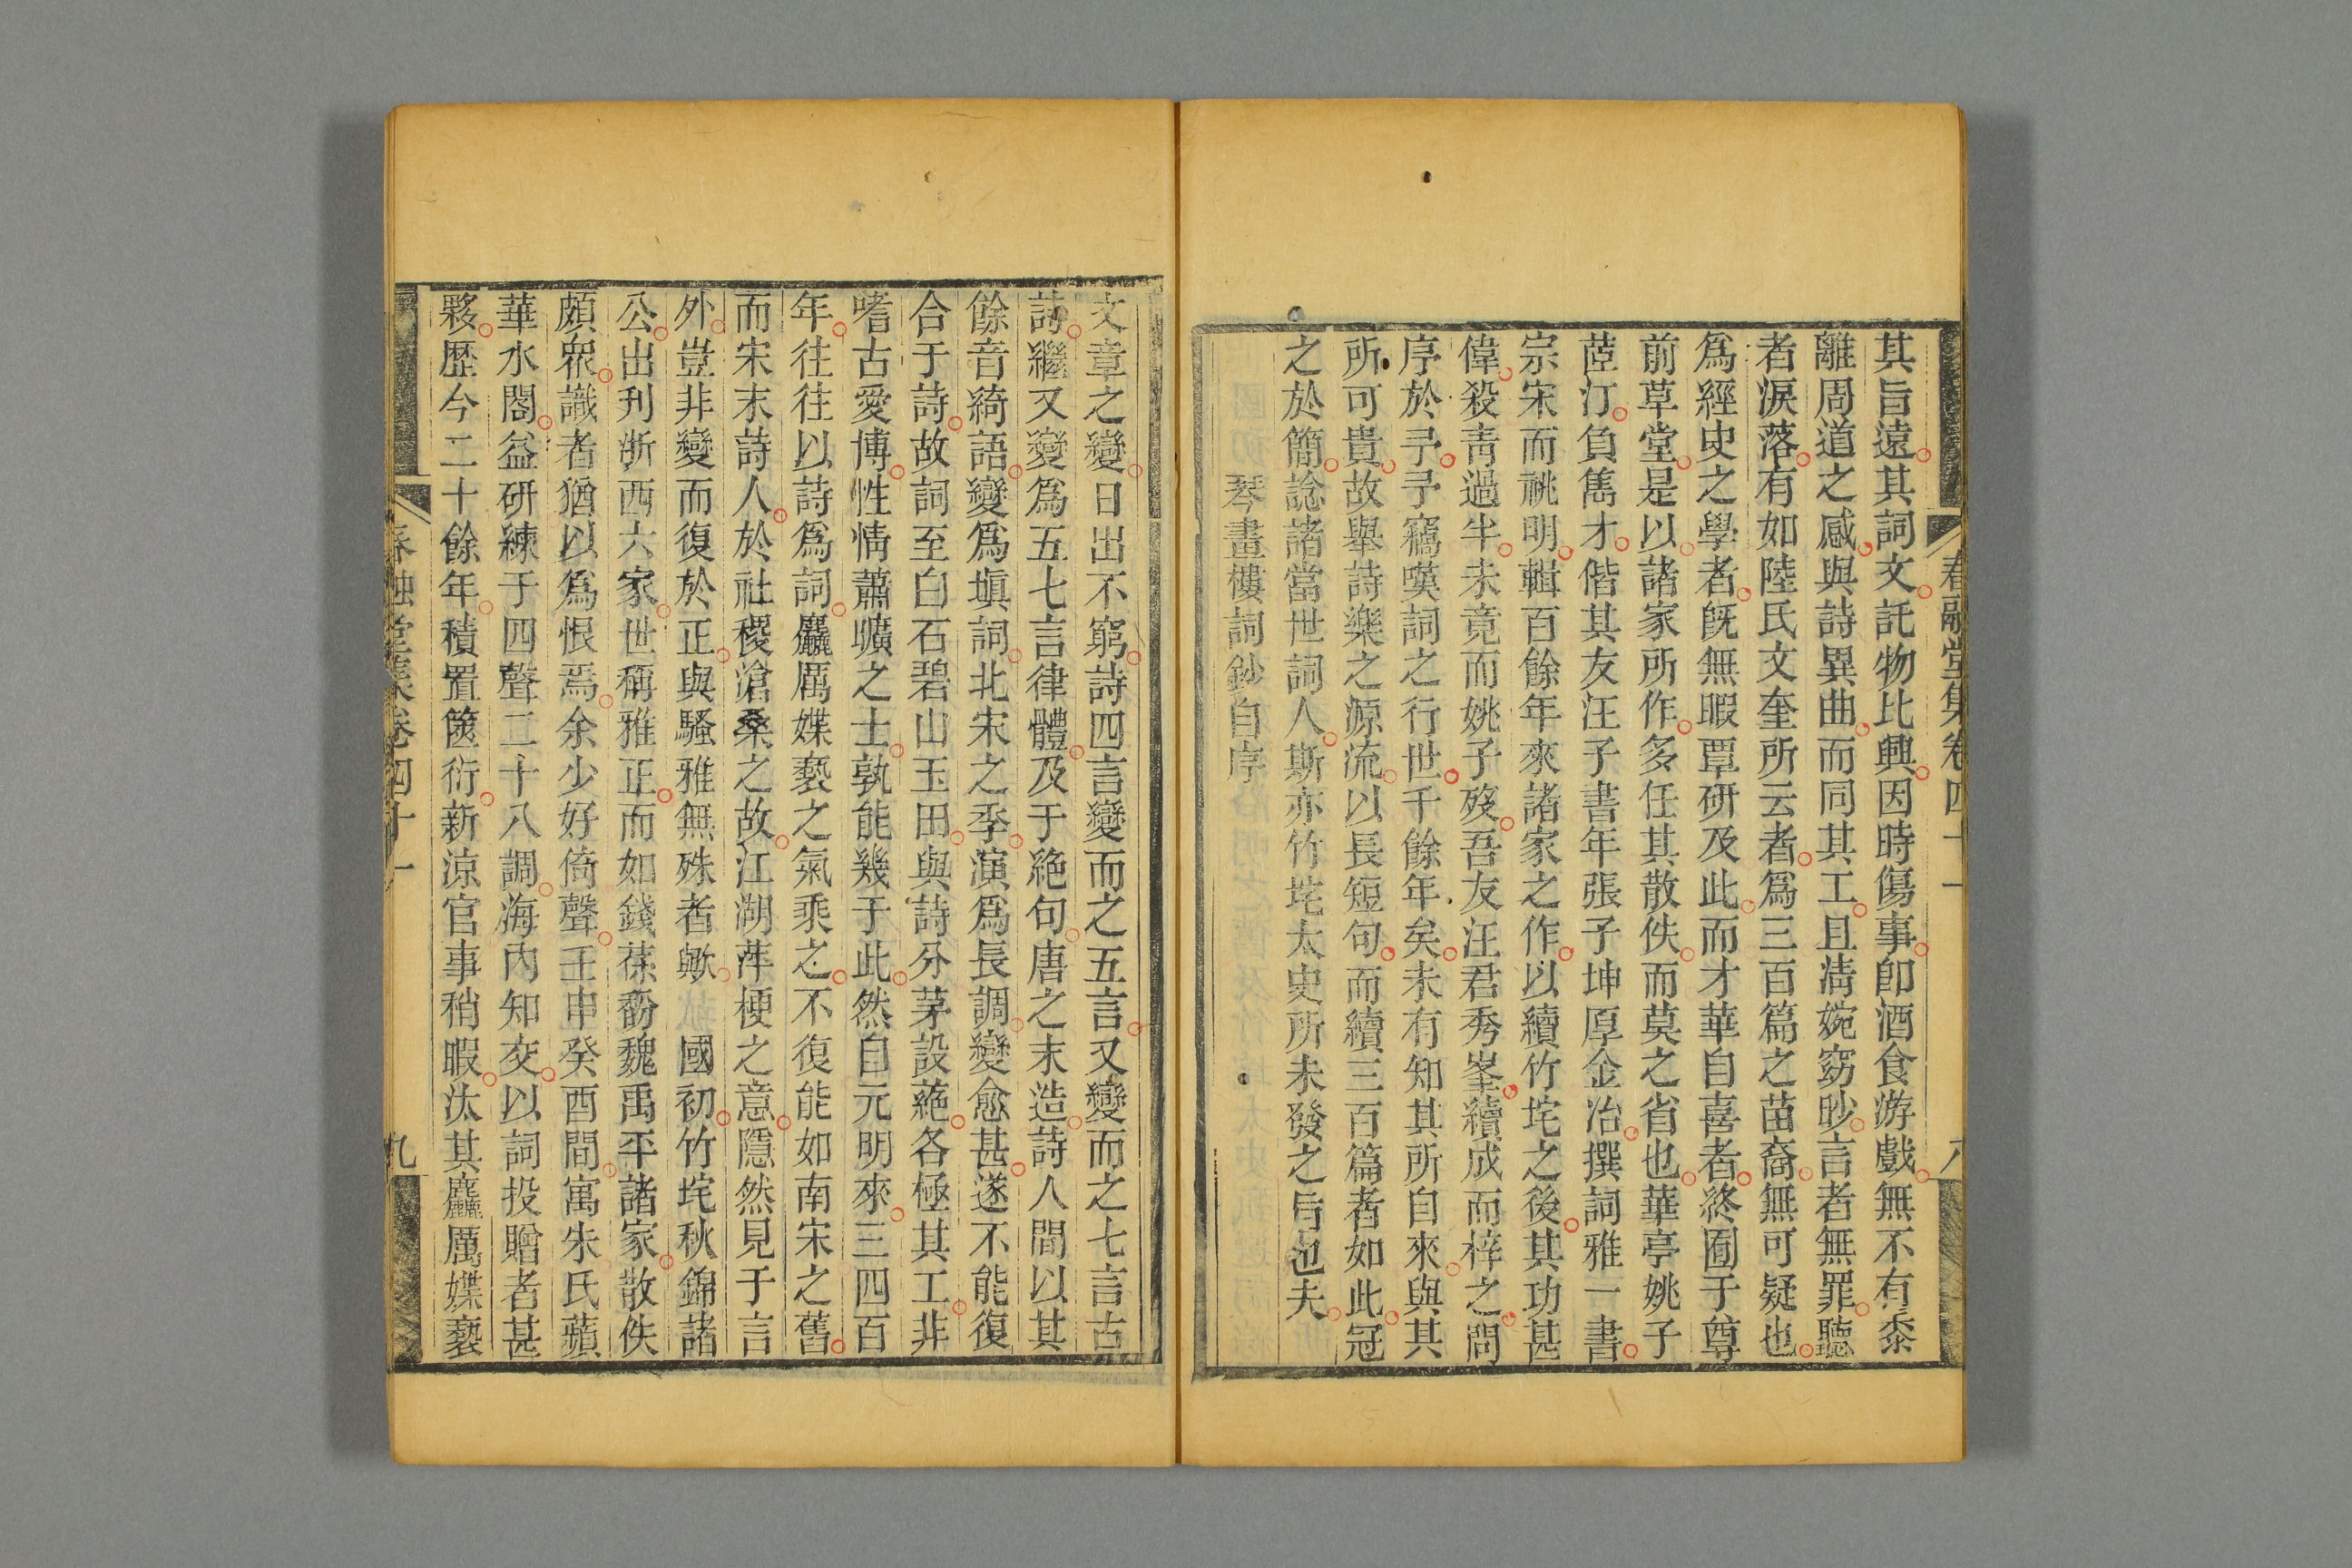 春融堂集卷四十一
其旨遠其詞文託物比興因時傷事卽酒食游戲無不有黍
離周道之感與詩異曲而同其工且淸婉窈眇言者無罪聽
者淚落有如陸氏文奎所云者爲三百篇之苗裔無可疑也
爲經史之學者旣無暇覃研及此而才華自喜者終囿于尊
前草堂是以諸家所作多任其散佚而莫之省也華亭姚子
茝汀負雋才偕其友汪子書年張子坤厚金冶撰詞雅一書
宗宋而祧明輯百餘年來諸家之作以續竹垞之後其功甚
偉殺靑過半未竟而姚子歿吾友汪君秀峯續成而梓之問
序於予予竊嘆詞之行世千餘年矣未有知其所自來與其
所可貴故舉詩樂之源流以長短句而續三百篇者如此冠
之於簡諗諸當世詞人斯亦竹垞太史所未發之旨也夫
琴畫樓詞鈔自序
文章之變日出不窮詩四言變而之五言又變而之七言古
詩繼又變爲五七言律體及于絶句唐之末造詩人間以其
餘音綺語變爲塡詞北宋之季演爲長調變愈甚遂不能復
合于詩故詞至白石碧山玉田與詩分茅設蕝各極其工非
嗜古愛博性情蕭曠之士孰能幾于此然自元明來三四百
年往往以詩爲詞麤厲媟褻之氣乘之不復能如南宋之舊
而宋末詩人於社稷滄桑之故江湖萍梗之意隱然見于言
外豈非變而復於正與騷雅無殊者歟 國初竹垞秋錦諸
公出刋浙西六家世稱雅正而如錢葆馚魏禹平諸家散佚
頗衆識者猶以爲恨焉余少好倚聲壬申癸酉間寓朱氏蘋
華水閣益硏練于四聲二十八調海內知交以詞投贈者甚
夥歴今二十餘年積置篋衍新涼官事稍暇汰其麤厲媟褻
春融堂集卷四十一
九